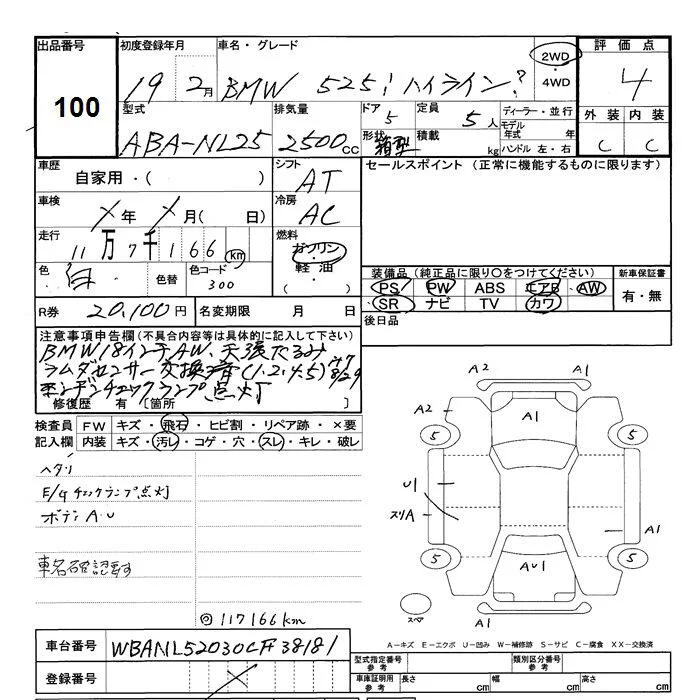 出品番号
100
初度登録年月
19 2月
車名・グレード
BMW 525i ハイライン?
2WD
・
4WD
評価点
4
外装 内装
C C
型式
ABA-NL25
排気量
2500cc
ドア
5
定員
5人
形状
箱型
積載
kg
ディーラー・並行
モデル
年式 年
ハンドル 左・右
車歴
自家用・( )
シフト
AT
セールスポイント (正常に機能するものに限ります)
車検
X年 X月( 日)
冷房
AC
走行
11万7千166km
燃料
ガソリン
・
軽油
色
白
色替
色コード
300
装備品(純正品に限り○をつけてください)
PS PW ABS エアB AW
SR ナビ TV カワ
新車保証書
有・無
R券 20,100円
名変期限 月 日
後日品
注意事項申告欄(不具合内容等は具体的に記入して下さい)
BMW18インチAW、天張たるみ
ラムダセンサー交換済(1.2.4.5)
エンジンチェックランプ点灯
修復歴 有 [箇所 ]
検査員
記入欄
FW キズ・飛石・ヒビ割・リペア跡・×要
内装 キズ・汚レ・コゲ・穴・スレ・キレ・破レ
ヘタリ
E/gチェックランプ点灯
ボディA・U
車名確認要す
◎117166km
A2 A1
A2 A1
5 5
U1
スリA
A1
5 5
AU1
スペア
A1
A－キズ E－エクボ U－凹み W－補修跡 S－サビ C－腐食 XX－交換済
車台番号
登録番号
X
型式指定番号
参考
類別区分番号
参考
車庫証明用
参考
長さ cm
幅 cm
高さ cm